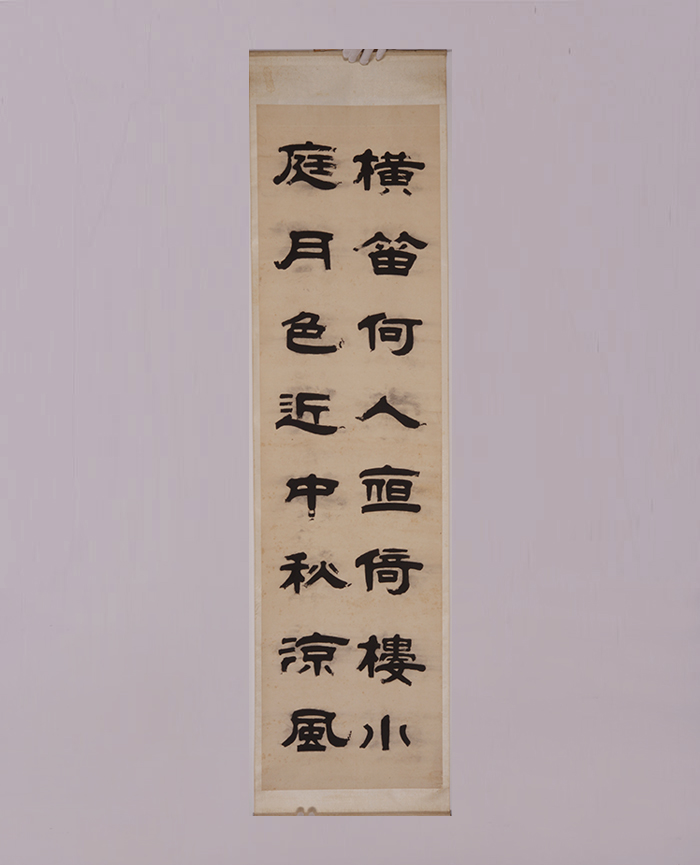 橫笛何人亱倚樓小
庭月色近中秋涼風